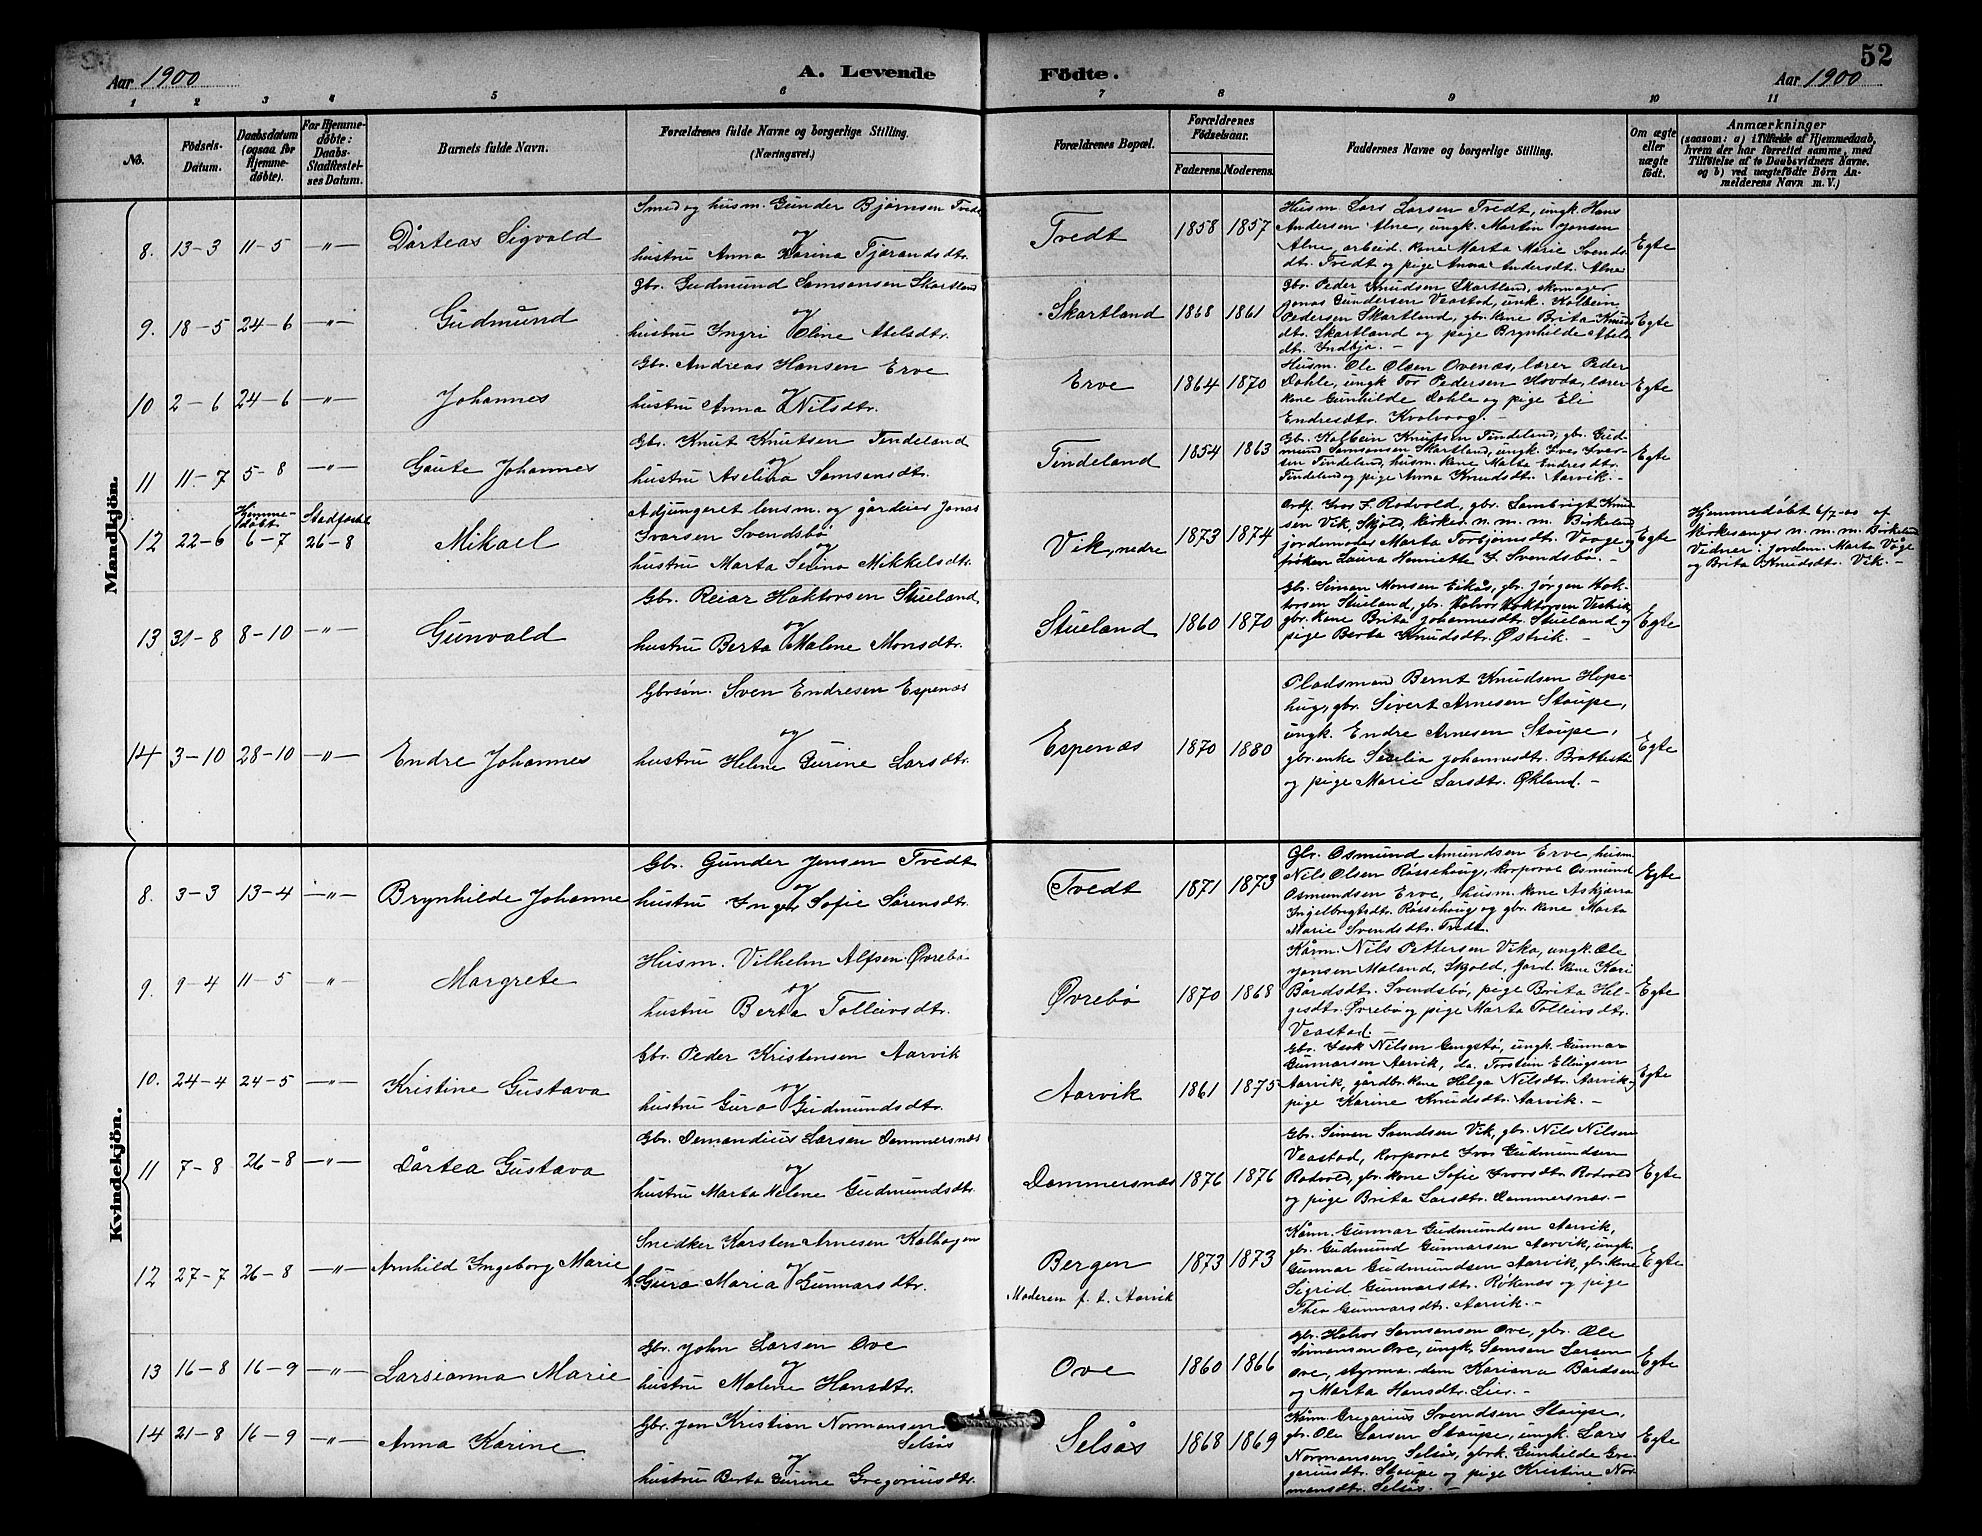 Aar 1900
A. Levende
Födte.
52
Aar 1900
1 2 3 4 5 6 7 8 9 10 11
No.
Födsels-
Datum.
Daabsdatum
(ogsaa for
Hjemme-
döbte).
For Hjemme-
döbte:
Daabs-
Stadfæstel-
ses Datum.
Barnets fulde Navn.
Forældrenes fulde Navne og borgerlige Stilling.
(Næringsvei.)
Forældrenes Bopæl.
Forældrenes
Födselsaar.
Faderens. Moderens.
Faddernes Navne og borgerlige Stilling.
Om ægte
eller
uægte
födt.
Anmærkninger
(saasom: a) i Tilfælde af Hjemmedaab,
hvem der har forrettet samme, med
Tilföielse af to Daabsvidners Navne.
og b) ved uægtefödte Börn An-
melderens Navn m. V.)
Mandkjön.
8. 13-3 11-5 -"- Dårteas Sigvald
Smed og husm. Gunder Bjørnsen Tvedt
og
hustru Anna Karina Tjerandsdtr.
Tvedt 1858 1857
Husm. Lars Larsen Tvedt, ungk. Hans
Andersen Alne, ungk. Martin Jensen
Alne, arbeid. kone Marta Marie Svends-
dtr. Tvedt og pige Anna Andersdt. Alne
Egte
9. 18-5 24-6 -"- Gudmund
Gbr. Gudmund Samsonsen Skartland
og
hustru Ingri Oline Abelsdtr.
Skartland 1868 1861
Gbr. Peder Knudsen Skartland, skomager
Jonas Gundersen Veastad, unk. Kolbein
Pedersen Skartland, gbr. kone Brita Knuds-
dtr. Skartland og pige Brynhilde Abels
dtr. Indbjo. -
Egte
10 2-6 24-6 -"- Johannes
Gbr. Andreas Hansen Erve
og
hustru Anna Nilsdtr.
Erve 1864 1870
Husm. Ole Olsen Ovenæs, lærer Peder
Dahle, ungk Tor Pedersen Hovda, lærer-
kone Gunhilde Dahle og pige Eli
Endresdtr. Kvalvaag. -
Egte
11 11-7 5-8 -"- Gaute Johannes
Gbr. Knut Knutsen Tindeland
og
hustru Aselina Samsonsdtr.
Tindeland 1854 1863
Gbr. Kolbein Knutsen Tindeland, gbr. Gud-
mund Samsonsen Skartland, ungk. Iver Iver-
sen Tindeland, husm. kone Malta Endresdtr.
Tindeland og pige Anna Knudsdtr. Aarvik. -
Egte
12 22-6 Hjemme-
döbt
6-7 Stadfæstet
26-8 Mikael
Adjungeret lensm. og gårdeier Jonas
Ivarsen Svendsbø
og
hustru Marta Selina Mikkelsdtr.
Vik, nedre 1873 1874
Ordf. Ivar S. Rødvold, gbr. Lambrigt Knu-
sen Vik, Skjold, kirkes. n. m. m. Birkeland
jordemoder Marta Torbjørnsdtr. Vaage og
frøken Laura Henriette I. Svendsbø. -
Egte
Hjemmedøbt 6/7-00 af
Kirkesanger n. m. m. Birkeland
Vidner: jordem. Marta Våge
og Brita Knudsdtr. Vik. -
13 31-8 8-10 -"- Gunvald
Gbr. Reiar Haktorsen Stueland
og
hustru Berta Malene Monsdtr.
Stueland 1860 1870
Gbr. Simon Monsen Eikås, gbr. Jørgen Hak-
torsen Stueland, gbr. Halvor Haktorsen Vestvik,
gbr. kone Brita Johannesdtr. Stueland og
pige Berta Knudsdtr. Østvik. -
Egte
14 3-10 28-10 -"- Endre Johannes
Gbrsøn. Sven Endresen Espenæs
og
hustru Helene Gurine Larsdtr.
Espenæs 1870 1880
Pladsmand Bernt Knudsen Hope-
hug, gbr. Sivert Arnesen Staupe,
ungk. Endre Arnesen Staupe,
gbr. enke Sesilia Johannesdtr. Brattestø
og pige Marie Larsdtr. Økland. -
Egte
Kvindekjön.
8. 3-3 13-4 -"- Brynhilde Johanne
Gbr. Gunder Jensen Tvedt
og
hustru Inger Sofie Sørensdtr.
Tvedt 1871 1873
Gbr. Osmund Amundsen Erve, husm.
Nils Olsen Røssehaug, korporal Osmund
Osmundsen Erve, husm. kone Askjerna
Ingelbrigtsdtr. Røssehaug og gbr. kone Marta
Marie Svendsdtr. Tvedt.
Egte
9. 9-4 11-5 -"- Margrete
Husm. Vilhelm Alfsen Øvrebø
og
hustru Berta Tolleivsdtr.
Øvrebø 1870 1868
Kårm. Nils Pettersen Vika, ungk. Ole
Jensen Maland, Skjold, Jord. kone Kari
Bårdsdtr. Svendsbø, pige Brita Hel-
gesdtr. Øvrebø og pige Marta Tolleivsdtr.
Veastad. -
Egte
10. 24-4 24-5 -"- Kristine Gustava
Gbr. Peder Kristensen Aarvik
og
hustru Guro Gudmundsdtr.
Aarvik 1861 1875
Gbr. Isak Nilsen Gangstø, ungk. Gunnar
Gunnarsen Aarvik, do. Torstein Ellingsen
Aarvik, gårdbr. kone Helga Nilsdtr. Aarvik og
pige Karine Knudsdtr. Aarvik. -
Egte
11 7-8 26-8 -"- Dårtea Gustava
Gbr. Demandius Larsen Dommersnæs
og
hustru Marta Helene Gudmundsdtr.
Dommersnæs 1876 1876
Gbr. Simon Svendsen Vik, gbr. Nils Nilsen
Veastad, korporal Ivar Gudmundsen
Rødvold, gbr. kone Sofie Ivarsdtr. Rødvold
og pige Brita Larsdtr. Dommersnæs. -
Egte
12 27-7 26-8 -"- Arnhild Ingeborg Marie
Snedker Karsten Arnesen Kalhagen
og
h. Guro Maria Gunnarsdtr.
Bergen
Moderen p. t. Aarvik
1873 1873
Kårm. Gunnar Gudmundsen Aarvik,
gbr. Gudmund Gunnarsen Aarvik, ungk.
Gunnar Gudmundsen Aarvik, gbr. kone
Sigrid Gunnarsdtr. Røkenæs og pige
Thea Gunnarsdtr. Aarvik. -
Egte
13 16-8 16-9 -"- Larsianna Marie
Gbr. John Larsen Ove
og
hustru Malene Hansdtr.
Ove 1860 1866
Gbr. Halvor Samsonsen Ove, gbr. Ole
Simonsen Ove, ungk. Samson Larsen
Ove, styrma. dem Kariana Bårdsen
og Marta Hansdtr. Lier. -
Egte
14 21-8 16-9 -"- Anna Karine
Gbr. Jon Kristian Normansen
Selsås
og
hustru Berta Gurine Gregoriusdtr.
Selsås 1868 1869
Kårm. Gregorius Svendsen Staupe,
gbr. Ole Larsen Staupe, ungk. Lars
Normansen Selsås, gbrk. Gunhilde Gre-
goriusdtr. Staupe og pige Kristine Nor-
mansdtr. Selsås. -
Egte